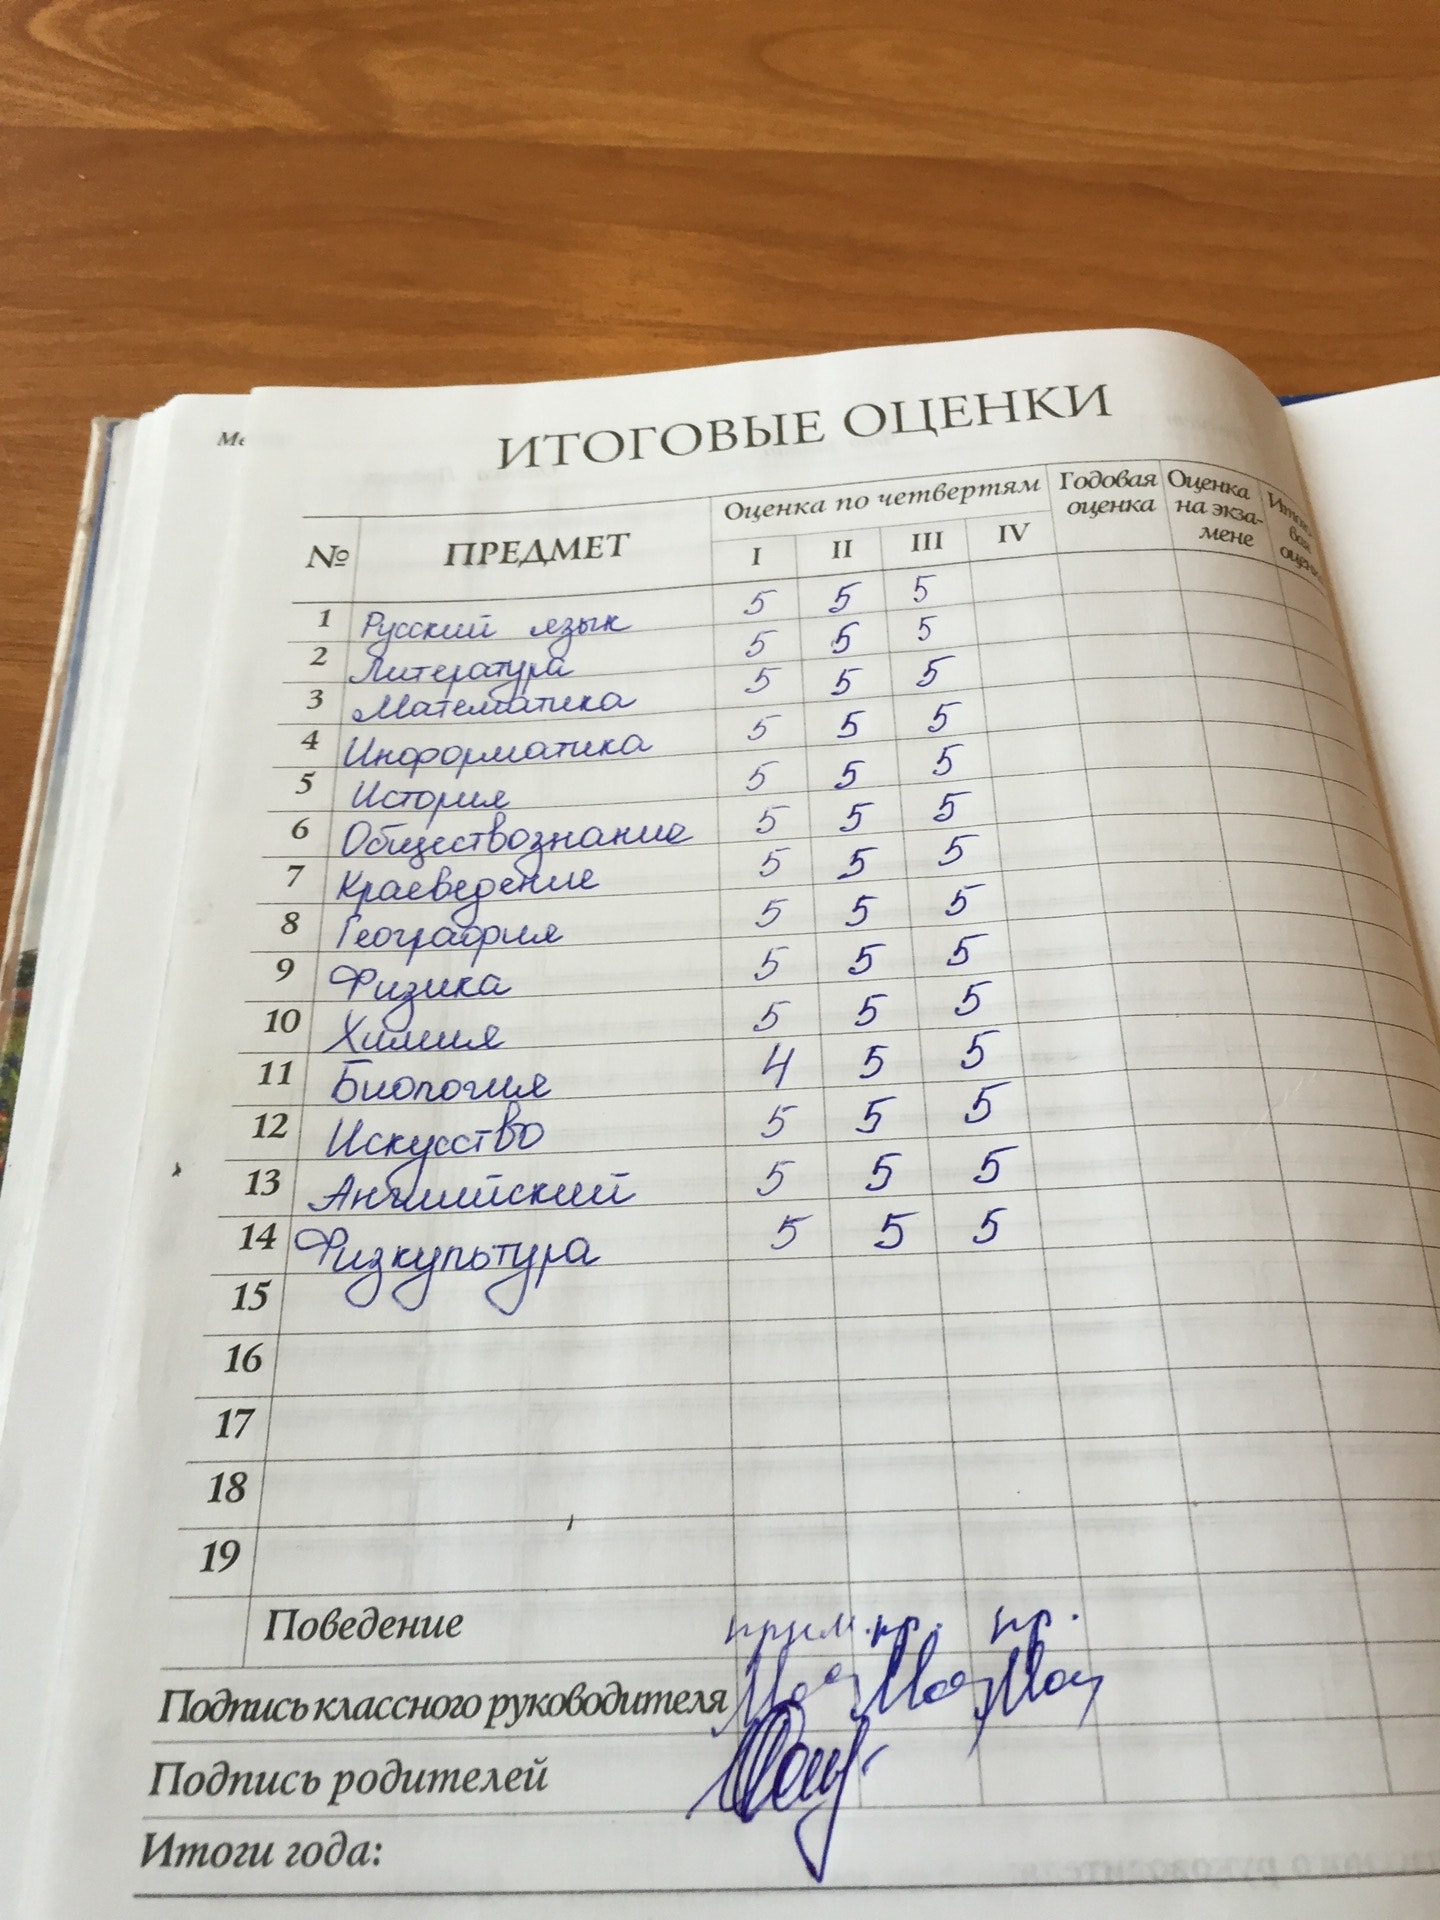 Ме
ИТОГОВЫЕ ОЦЕНКИ
№ ПРЕДМЕТ Оценка по четвертям Годовая оценка Оценка на экза-мене Итого-вая оценка
I II III IV
1 Русский язык 5 5 5
2 Литература 5 5 5
3 Математика 5 5 5
4 Информатика 5 5 5
5 История 5 5 5
6 Обществознание 5 5 5
7 Краеведение 5 5 5
8 География 5 5 5
9 Физика 5 5 5
10 Химия 5 5 5
11 Биология 4 5 5
12 Искусство 5 5 5
13 Английский 5 5 5
14 Физкультура 5 5 5
15
16
17
18
19
Поведение прим. пр. пр.
Подпись классного руководителя
Подпись родителей
Итоги года: